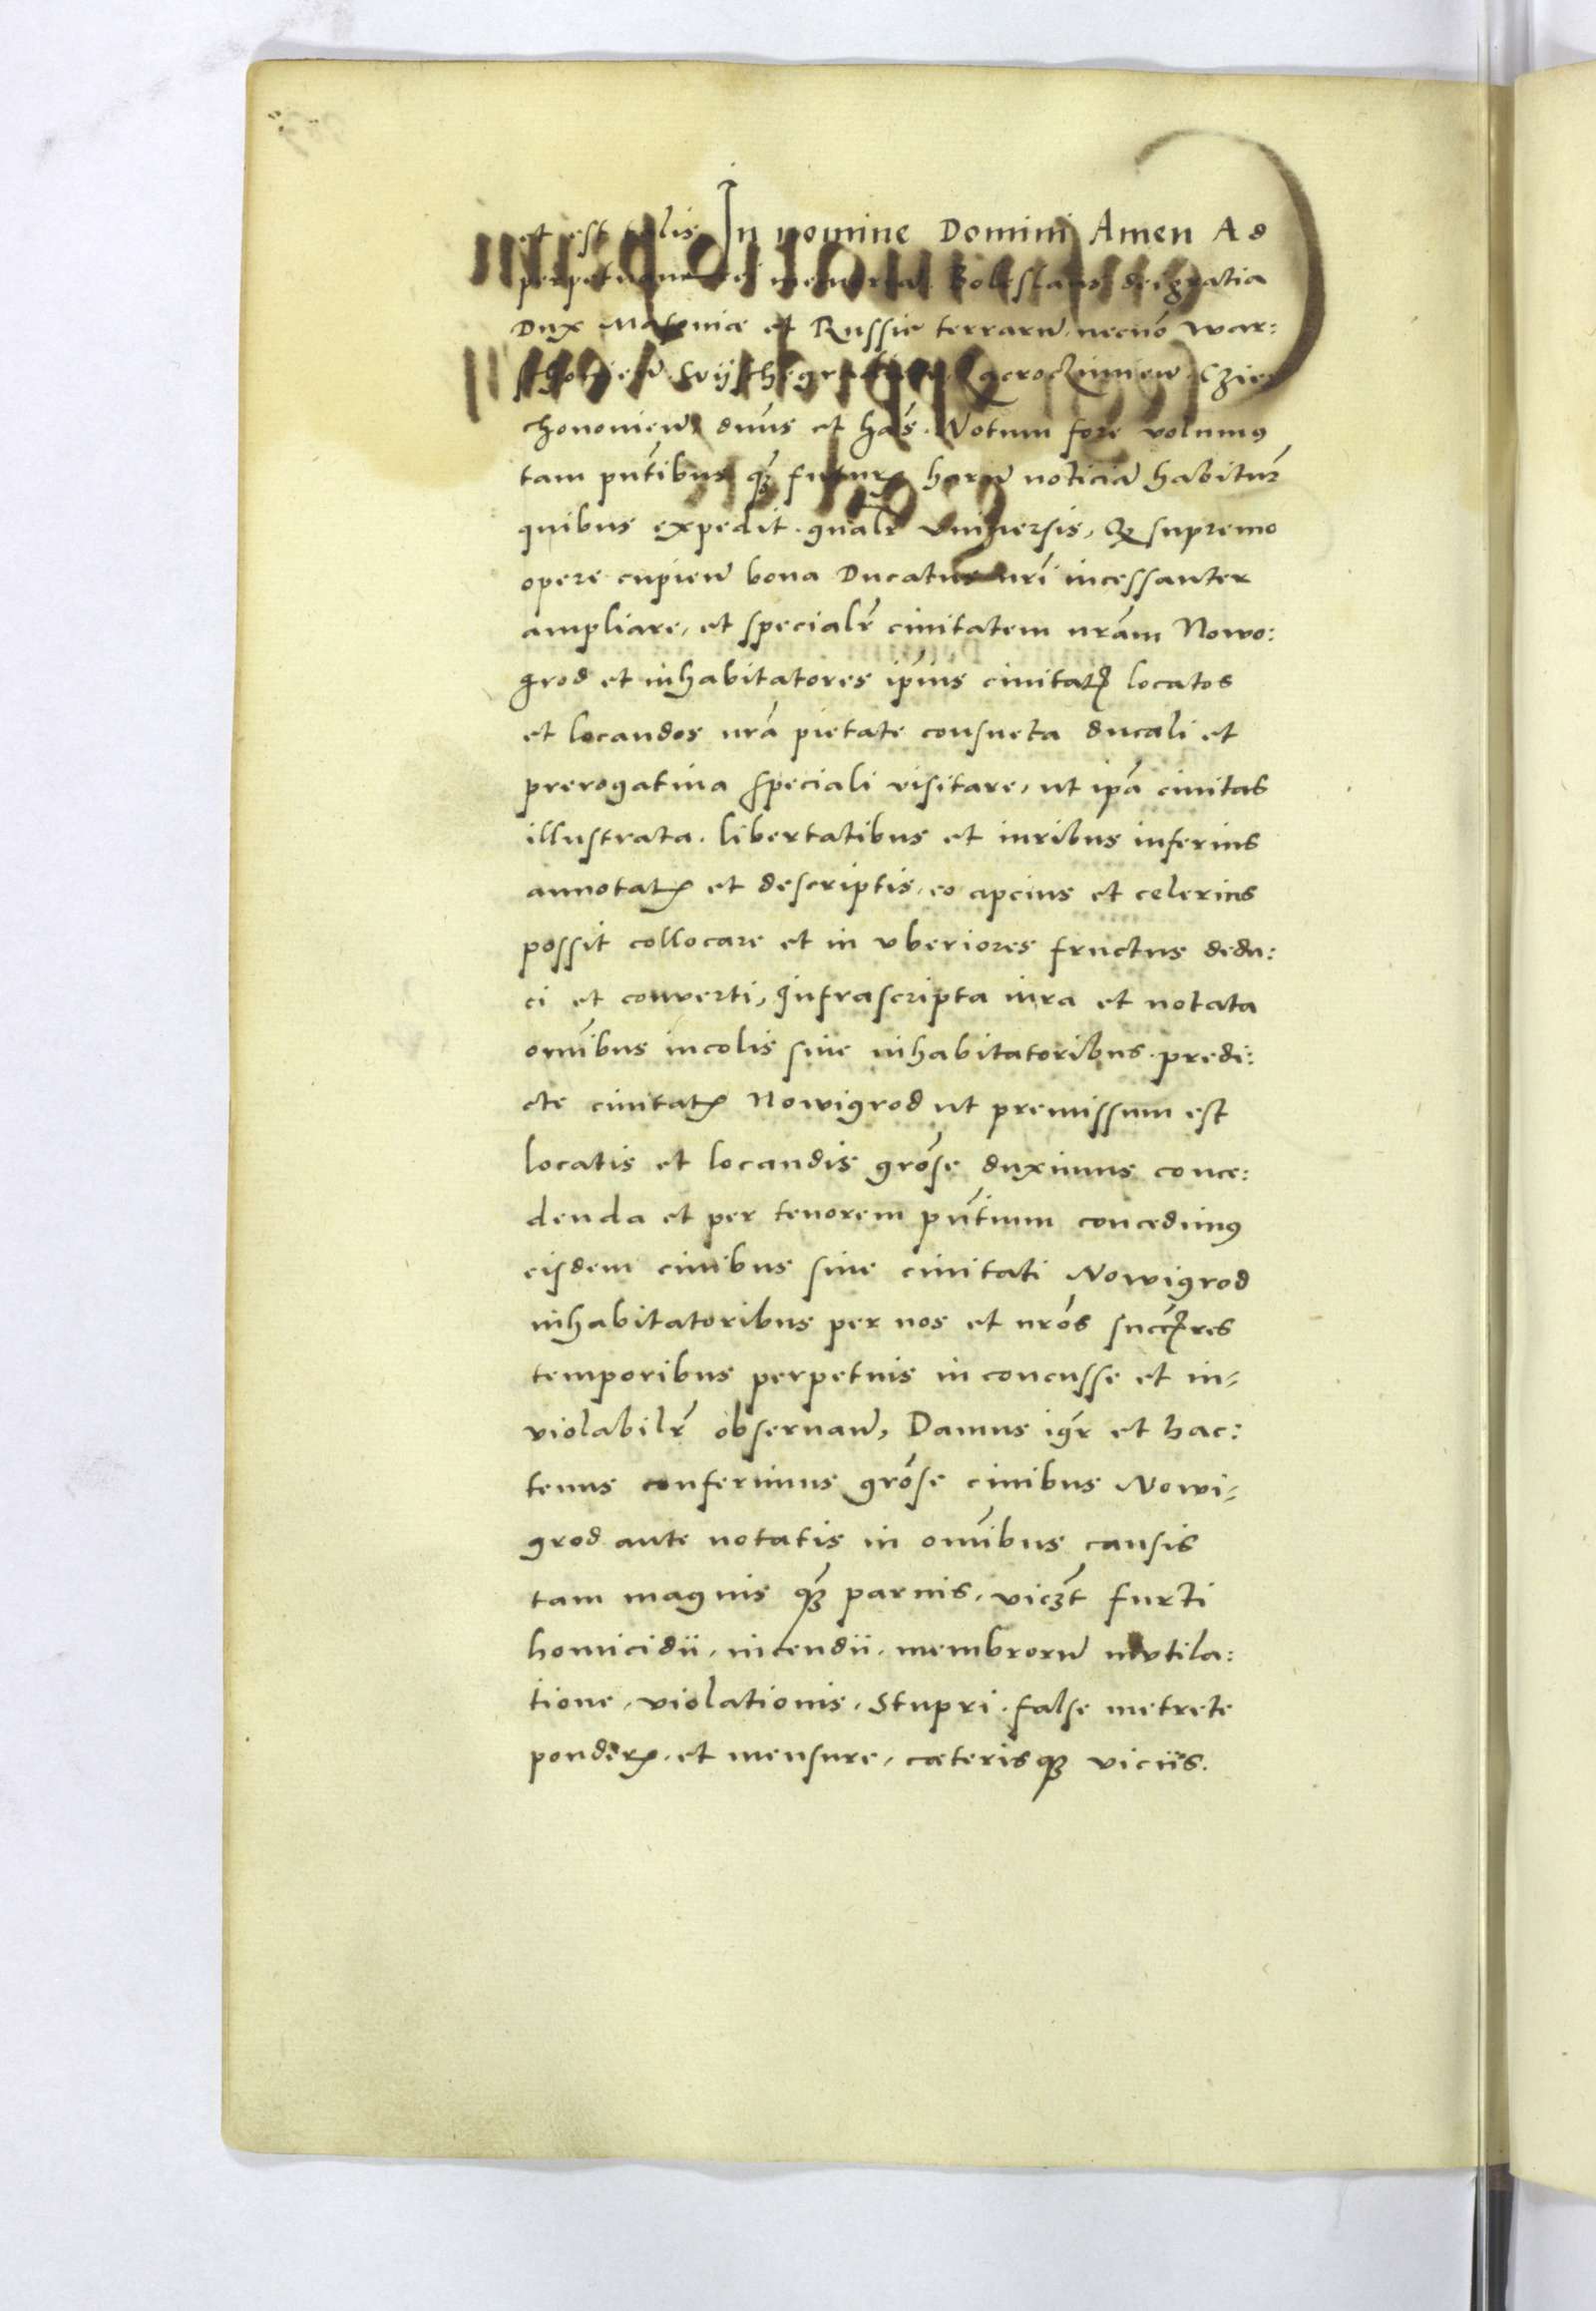 et est talis In nomine Domini Amen Ad
perpetuam rei memoriam. Boleslaus dei gratia
Dux Mazouiae et Russie terrarū. necnō War:
chonouien̄ dn̄us et hae͂s. Notum fore volumus
tam pn̄tibus q̄ꝫ futurꝭ harū noticiā habiturꝭ
quibus expedit. gn̄alr̄ vniuersis, Qꝫ supremo
opere cupien̄ bona Ducatus nr̄i incessanter
ampliare, et specialr̄ ciuitatem nr̄am Nowo:
grod et inhabitatores ip̄ius ciuitatꝭ locatos
et locandos nr̄a pietate consueta ducali et
prerogatiua speciali visitare, ut ip̄a ciuitas
illustrata. libertatibus et iuribus inferius
annotatꝭ et descriptis, eo apcius et celerius
possit collocare et in vberiores fructus dedu:
ci et conuerti, Infrascripta iura et notata
om̄ibus incolis siue inhabitatoribus. predi:
cte ciuitatꝭ Nowigrod ut premissum est
locatis et locandis grōse duximus conce:
denda et per tenorem pn̄tium concedimus
eisdem ciuibus siue ciuitati Nowigrod
inhabitatoribus per nos et nr̄os succ̄res
temporibus perpetuis in concusse et in-
violabilr̄ obseruan̄, Damus igr̄ et hac:
tenus conferimus grōse ciuibus Nowi-
grod ante notatis in om̄ibus causis
tam magnis q̄ꝫ paruis, vicꝫt furti
homicidii, incendii, membrorū mutila:
tione, violationis, Stupri. false metrete
ponderꝭ. et mensure, caeterisqꝫ viciis.